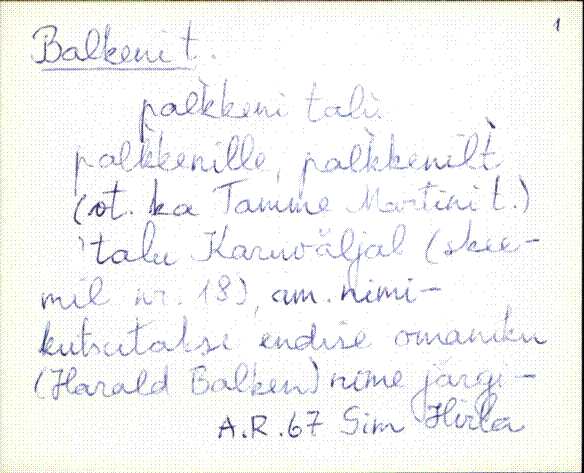 1
Balkeni t.
pal̀kkeni talù.
pal̀kkenille, pal̀kkenìlt̀
(vt. ka Tamme Martini t.)
'talu Karuväljal (skee-
mil nr. 18), am. nimi-
kutsutakse endise omaniku
(Harald Balken) nime järgi-
A.R. 67 Sim Hirla